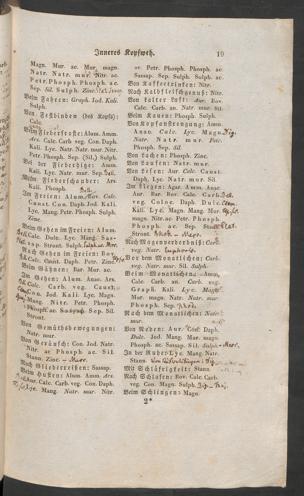 Inneres Kopfweh. 19
Magn. Mur. ac. Mur. magn.
Natr. Natr. mur. Nitr. ac.
Petr. Phosph. Phosph. ac.
Sep. Sil. Sulph. Zinc.
Beim Fahren: Graph. Jod. Kali.
Sulph.
Von Festbinden (des Kopfs):
Calc.
Beim Fieberfroste: Alum. Amm.
Ars. Calc. Carb. veg. Con. Daph.
Kali. Lyc. Natr. Natr. mur. Nitr.
Petr. Phosph. Sep. (Sil.) Sulph.
Bei der Fieberhitze: Amm.
Kali. Lyc. Natr. mur. Sep.
Beim Fieberschauder: Ars.
Kali. Phosph.
Im Freien: Alum. Bov. Calc.
Caust. Con. Daph. Jod. Kali.
Lyc. Mang. Petr. Phosph. Sulph.
Zinc.
Beim Gehen im Freien: Alum.
Calc. Dule. Lyc. Mang.
s.p. Stront. Sulph.
Nach Gehen im Freien: Bov.
Calc. Caust. Daph. Petr. Zinc.
Beim Gähnen: Bar. Mur. ac.
Im Gehen: Alum. Anac. Ars.
Calc. Carb. veg. Caust.
Con. Jod. Kali. Lyc. Magn.
Mang. Nitr. Petr. Phosph.
Phosph. ac. Sassap. Sep. Sil.
Stront.
Von Gemüthsbewegungen:
Natr. mur.
Von Geräusch: Con. Jod. Natr.
Nitr. ac. Phosph. ac. Sil.
Stann. Zinc.
Nach Gliederreißen: Sassap.
Beim Husten: Alum. Amm. Arn.
Aur. Calc. Carb. veg. Con. Daph.
Lyc. Mang. Natr. mur. Nitr.
ac. Petr. Phosph. Phosph. ac.
Sassap. Sep. Sulph. Sulph. ac.
Von Kaffeetrinken: Nitr.
Nach Kalbfleischgenuß: Nitr.
Von kalter Luft: Aur. Bov.
Calc. Carb. an. Natr. mur. Sil.
Beim Kauen: Phosph. Sulph.
Von Kopfanstrengung: Amm.
Anac. Calc. Lyc. Magn.
Natr. Natr. mur. Petr.
Phosph. Sep. Sil.
Von Lachen: Phosph. Zinc.
Von Laufen: Natr. mur.
Von Lesen: Aur. Calc. Caust.
Daph. Lyc. Natr. mur. Sil.
Im Liegen: Agar. Amm. Anac.
Aur. Bar. Bov. Calc. Carb.
veg. Coloc. Daph. Dule.
Kali. Lyc. Magn. Mang. Mur.
magn. Nitr. ac. Petr. Phosph.
Phosph. ac. Sep. Stann.
Stront.
Nach Magenverderbniß: Carb.
veg. Natr.
Vor dem Monatlichen: Carb.
veg. Natr. mur. Sil. Sulph.
Beim Monatlichen: Amm.
Calc. Carb. an. Carb. veg.
Graph. Kali. Lyc. Magn.
Mur. magn. Natr. Natr. mur.
Phosph. Sep.
Nach dem Monatlichen: Natr.
mur.
Von Reden: Aur. Con. Daph.
Dule. Jod. Mang. Mur. magn.
Phosph. ac. Sassap. Sil. Sulph.
In der Ruhe: Lyc. Mang. Natr.
Stann.
Mit Schläfrigkeit: Stann.
Nach Schlafen: Bov. Calc. Carb.
veg. Con. Magn. Sulph.
Beim Schlingen: Magn.
2*